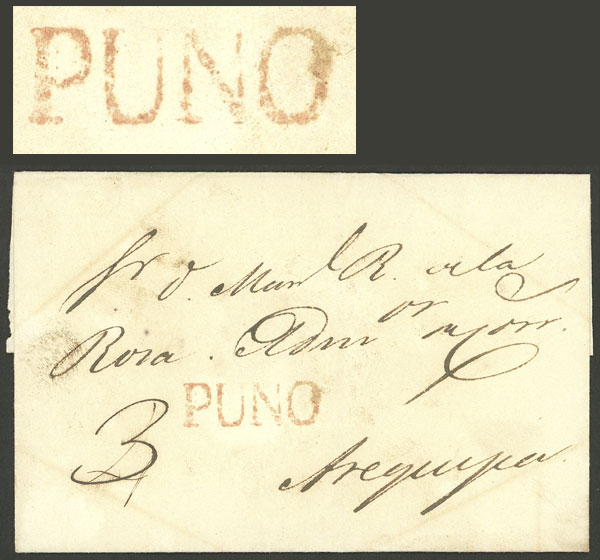 PUNO
Sr. d. Manl. R. de la
Rosa. Admor. mor.
PUNO
3
Arequipa